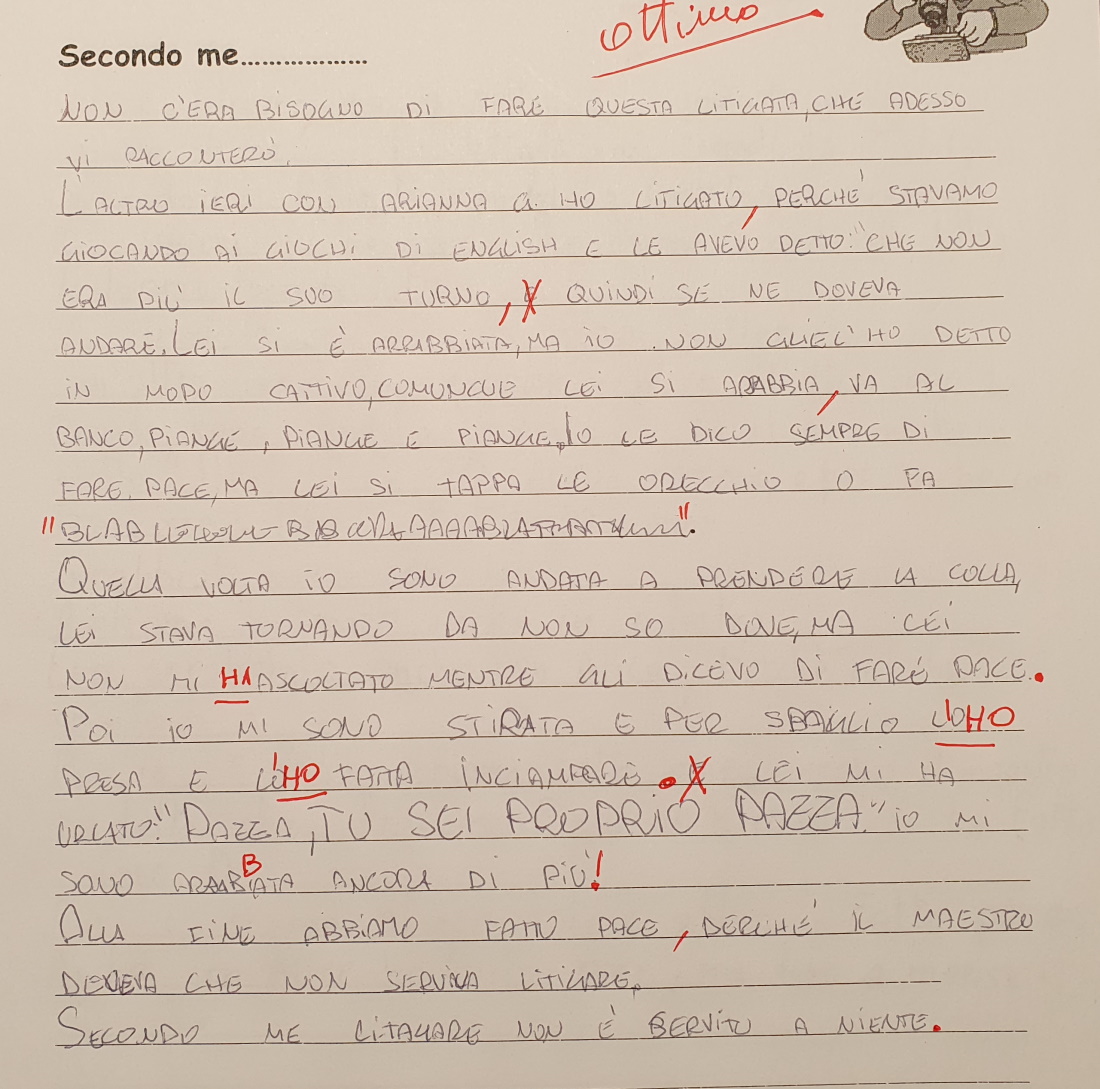 ottimo
Secondo me..................
NON C'ERA BISOGNO DI FARE QUESTA LITIGATA, CHE ADESSO
VI RACCONTERÒ.
L'ALTRO IERI CON ARIANNA G. HO LITIGATO, PERCHÉ STAVAMO
GIOCANDO AI GIOCHI DI ENGLISH E LE AVEVO DETTO: "CHE NON
ERA PIÙ IL SUO TURNO, E QUINDI SE NE DOVEVA
ANDARE. LEI SI È ARRABBIATA, MA IO NON GLIEL'HO DETTO
IN MODO CATTIVO, COMUNQUE LEI SI ARABBIA, VA AL
BANCO, PIANGE, PIANGE E PIANGE, IO LE DICO SEMPRE DI
FARE PACE, MA LEI SI TAPPA LE ORECCHIO O FA
QUELLA VOLTA IO SONO ANDATA A PRENDERE LA COLLA,
LEI STAVA TORNANDO DA NON SO DOVE, MA LEI
NON MI HA ASCOLTATO MENTRE GLI DICEVO DI FARE PACE.
POI IO MI SONO STIRATA E PER SBAGLIO L'HO
PRESA E L'HO FATTA INCIAMPARE. E LEI MI HA
URLATO: "PAZZA, TU SEI PROPRIO PAZZA" IO MI
SONO ARRABBIATA ANCORA DI PIÙ!
ALLA FINE ABBIAMO FATTO PACE, PERCHÉ IL MAESTRO
DICEVA CHE NON SERVIVA LITIGARE.
SECONDO ME LITAGARE NON È SERVITO A NIENTE.